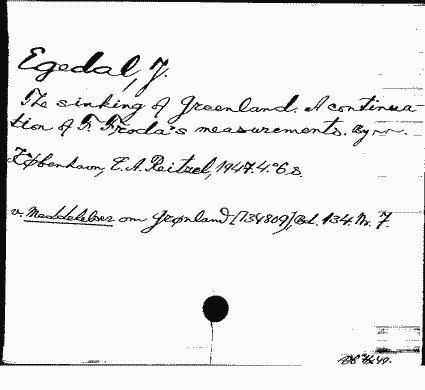 Egedal, J.
The sinking of Greenland. A continua-
tion of F. Froda's measurements. By ~~.
København, C. A. Reitzel, 1947. 4.° 6 s.
v. Meddelelser om Grønland [134809], Bd. 134. Nr. 7.